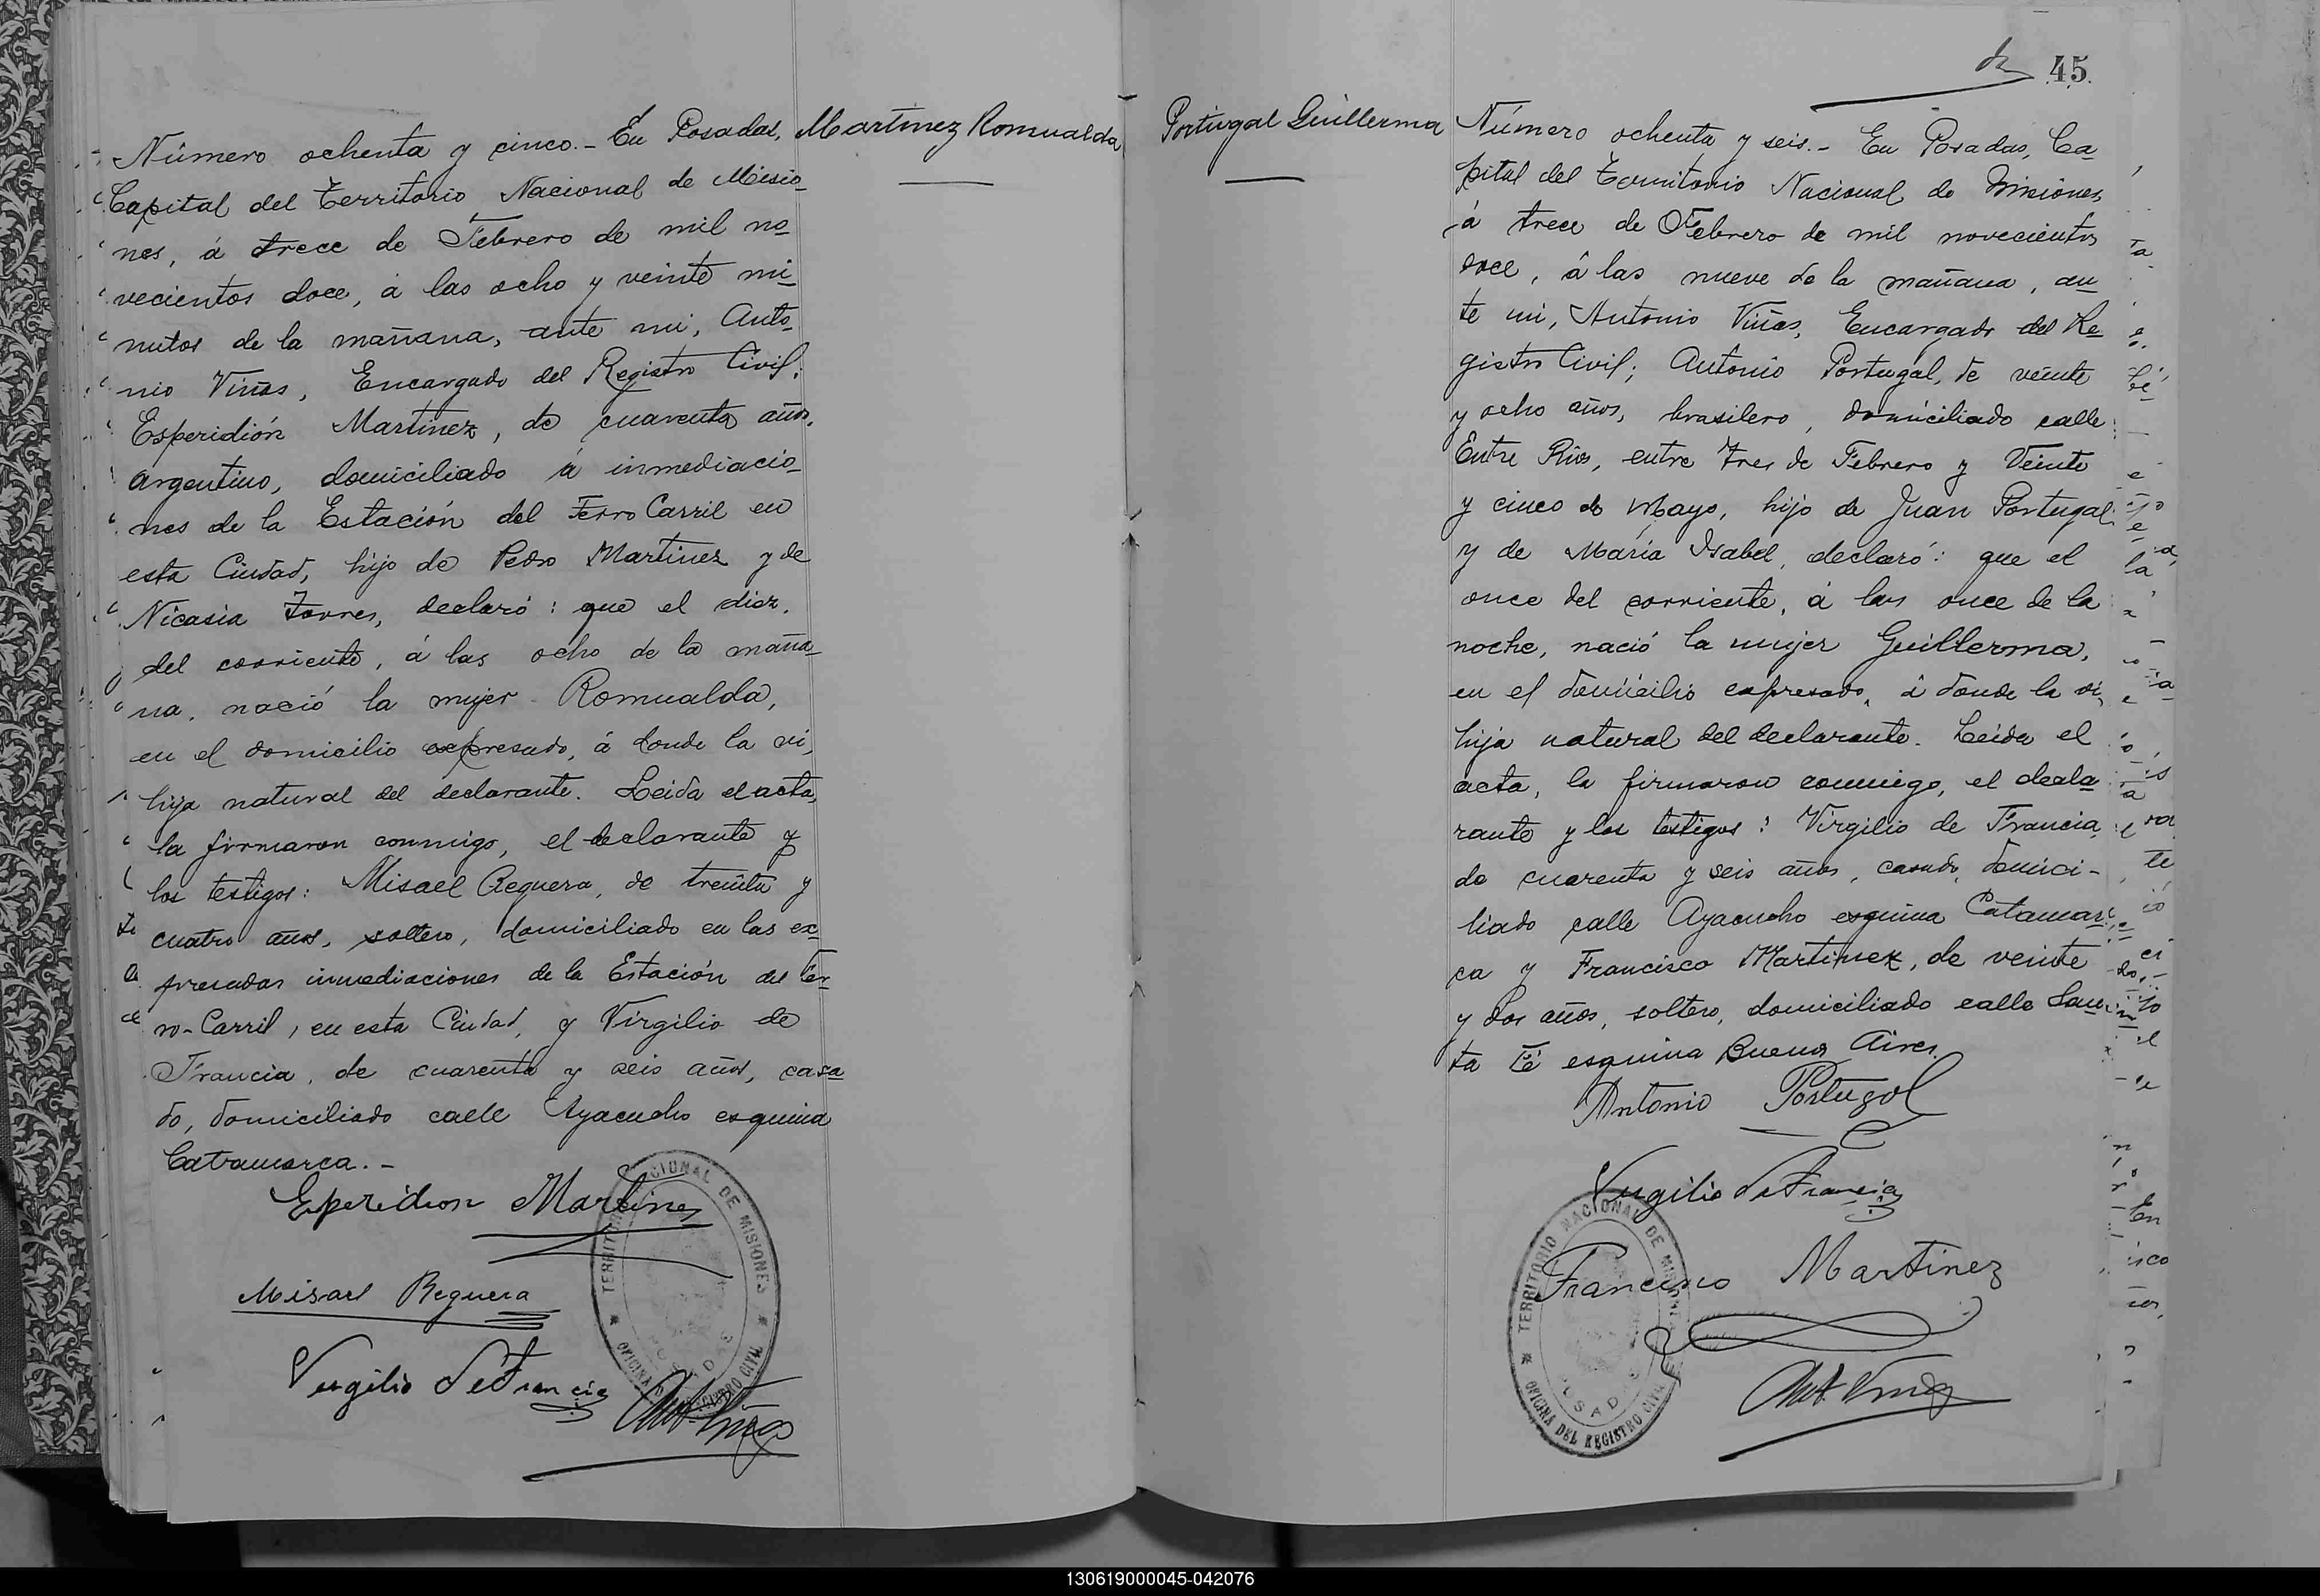 Martinez Romualda
Número ochenta y cinco.- En Posadas,
Capital del Territorio Nacional de Misio
nes, á trece de Febrero de mil no
vecientos doce, á las ocho y veinte mi
nutos de la mañana, ante mi, Anto
nio Viñas, Encargado del Registro Civil;
Esperidión Martinez, de cuarenta años,
argentino, domiciliado á inmediacio
nes de la Estación del Ferro Carril en
esta Ciudad, hijo de Pedro Martinez y de
Nicasia Torres, declaró: que el diez
del corriente, á las ocho de la maña
na, nació la mujer Romualda,
en el domicilio expresado, á donde la vi,
hija natural del declarante. Leida el acta,
la firmaron conmigo, el declarante y
los testigos: Misael Reguera, de treinta y
cuatro años, soltero, domiciliado en las ex
presadas inmediaciones de la Estación del Fer
ro-Carril, en esta Ciudad, y Virgilio de
Francia, de cuarenta y seis años, casa
do, domiciliado calle Ayacucho esquina
Catamarca.-
Esperidion Martines
Misael Reguera
Virgilio de Francia
Ant. Viñas
TERRITORIO NACIONAL DE MISIONES
OFICINA DEL REGISTRO CIVIL
POSADAS
45
Portugal Guillerma
Número ochenta y seis.- En Posadas, Ca
pital del Territorio Nacional de Misiones,
á trece de Febrero de mil novecientos
doce, á las nueve de la mañana, an
te mi, Antonio Viñas, Encargado del Re
gistro Civil; Antonio Portugal, de veinte
y ocho años, brasilero, domiciliado calle
Entre Rios, entre Tres de Febrero y Veinte
y cinco de Mayo, hijo de Juan Portugal
y de María Isabel, declaró: que el
once del corriente, á las once de la
noche, nació la mujer Guillerma,
en el domicilio expresado, á donde la vi,
hija natural del declarante. Leida el
acta, la firmaron conmigo, el decla
rante y los testigos: Virgilio de Francia,
de cuarenta y seis años, casado, domici-
liado calle Ayacucho esquina Catamar
ca y Francisco Martinez, de veinte
y dos años, soltero, domiciliado calle San
ta Fé esquina Buenos Aires.
Antonio Portugal
Virgilio de Francia
Francisco Martinez
Ant. Viñas
TERRITORIO NACIONAL DE MISIONES
OFICINA DEL REGISTRO CIVIL
POSADAS
130619000045-042076